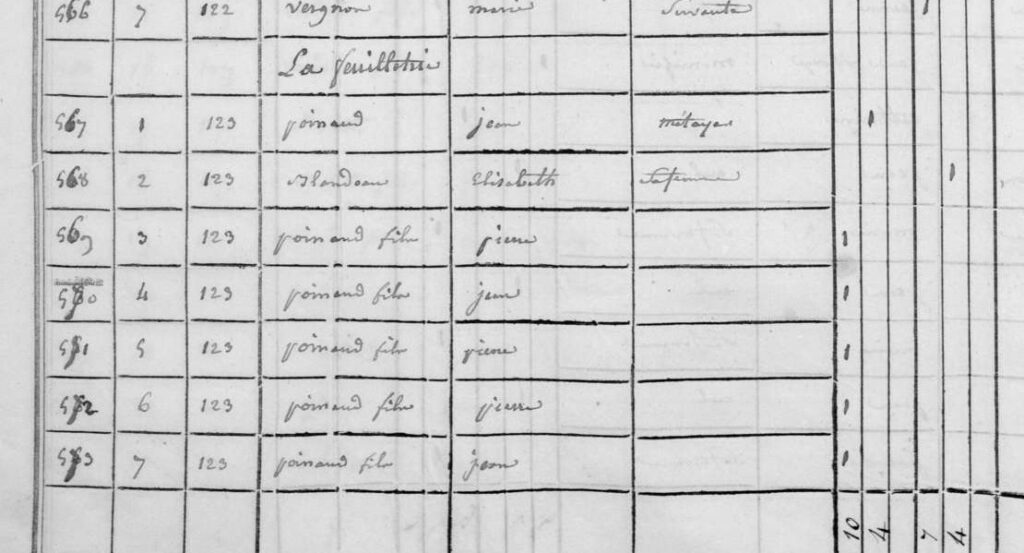 566 7 122 Vergnon marie Suivante 1
La feuilletrie
567 1 123 poinaud jean métayer 1
568 2 123 Blandeau Elisabeth sa femme 1
569 3 123 poinaud fils pierre 1
570 4 123 poinaud fils jean 1
571 5 123 poinaud fils pierre 1
572 6 123 poinaud fils pierre 1
573 7 123 poinaud fils jean 1
10 4 7 4